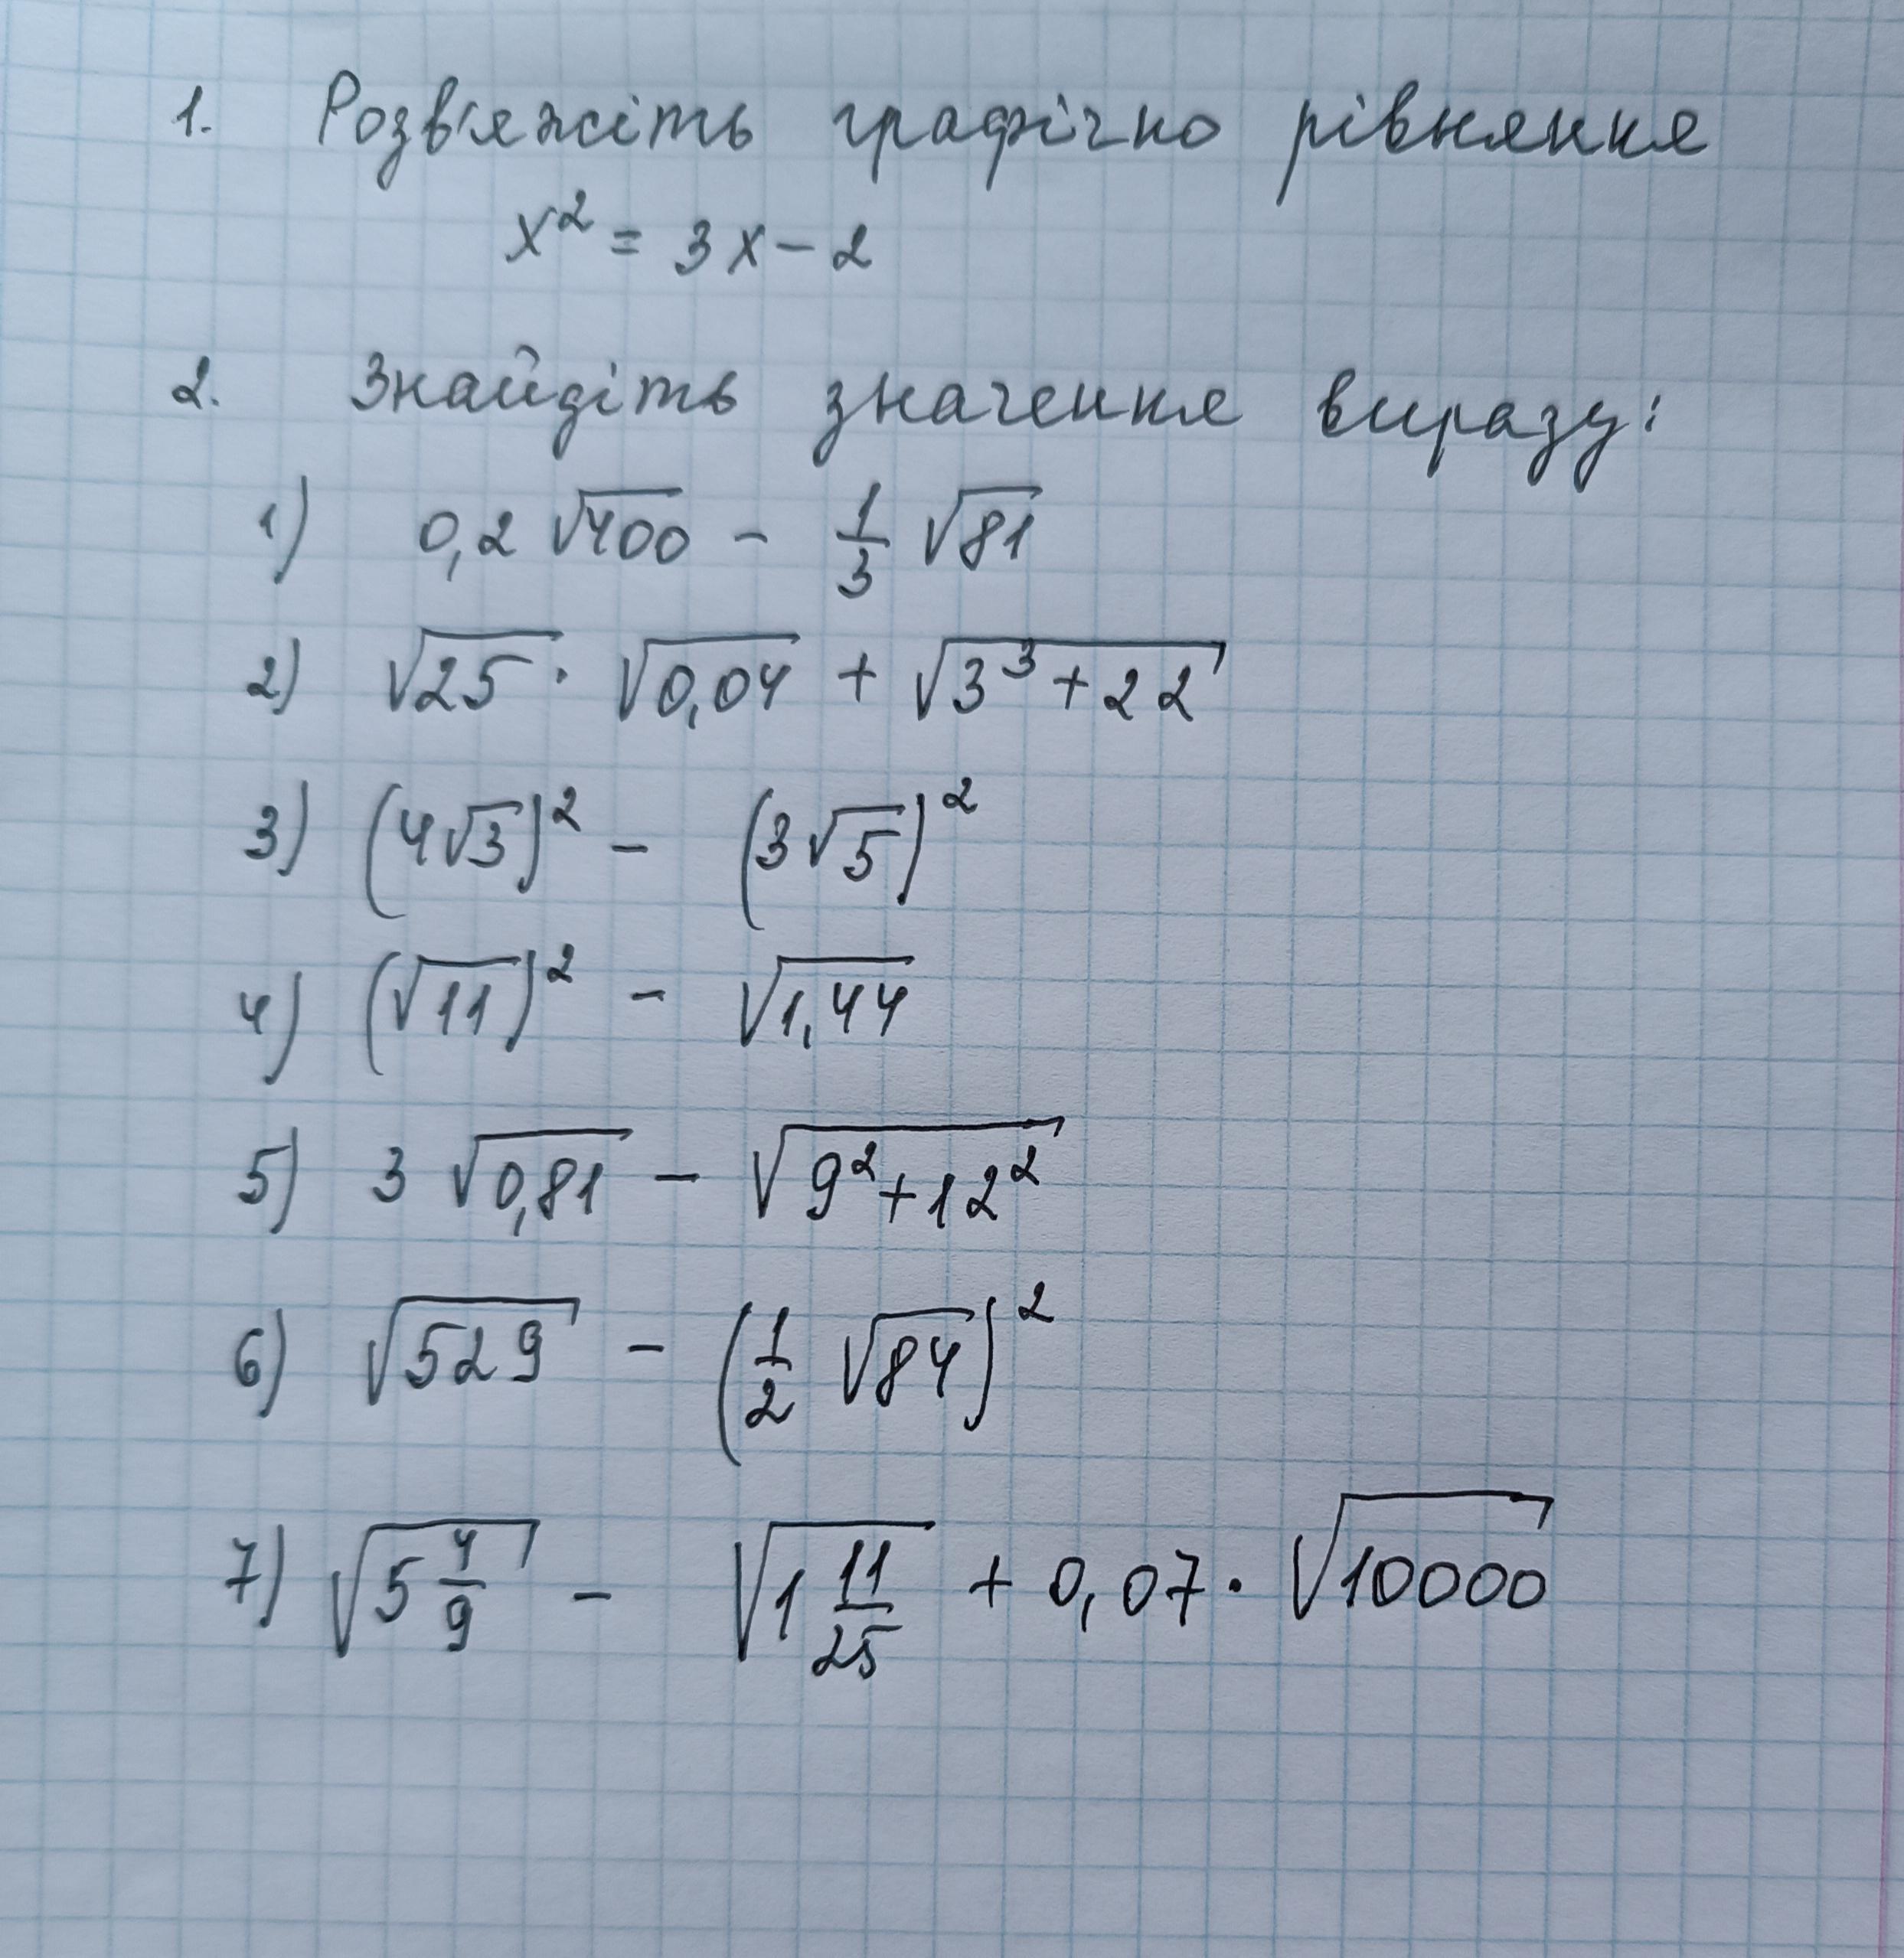 1. Розв'яжіть графічно рівняння
x² = 3x - 2
2. Знайдіть значення виразу:
1) 0,2 √400 - 1/3 √81
2) √25 · √0,04 + √(3³ + 22)
3) (4√3)² - (3√5)²
4) (√11)² - √1,44
5) 3 √0,81 - √(9² + 12²)
6) √529 - (1/2 √84)²
7) √(5 4/9) - √(1 11/25) + 0,07 · √10000